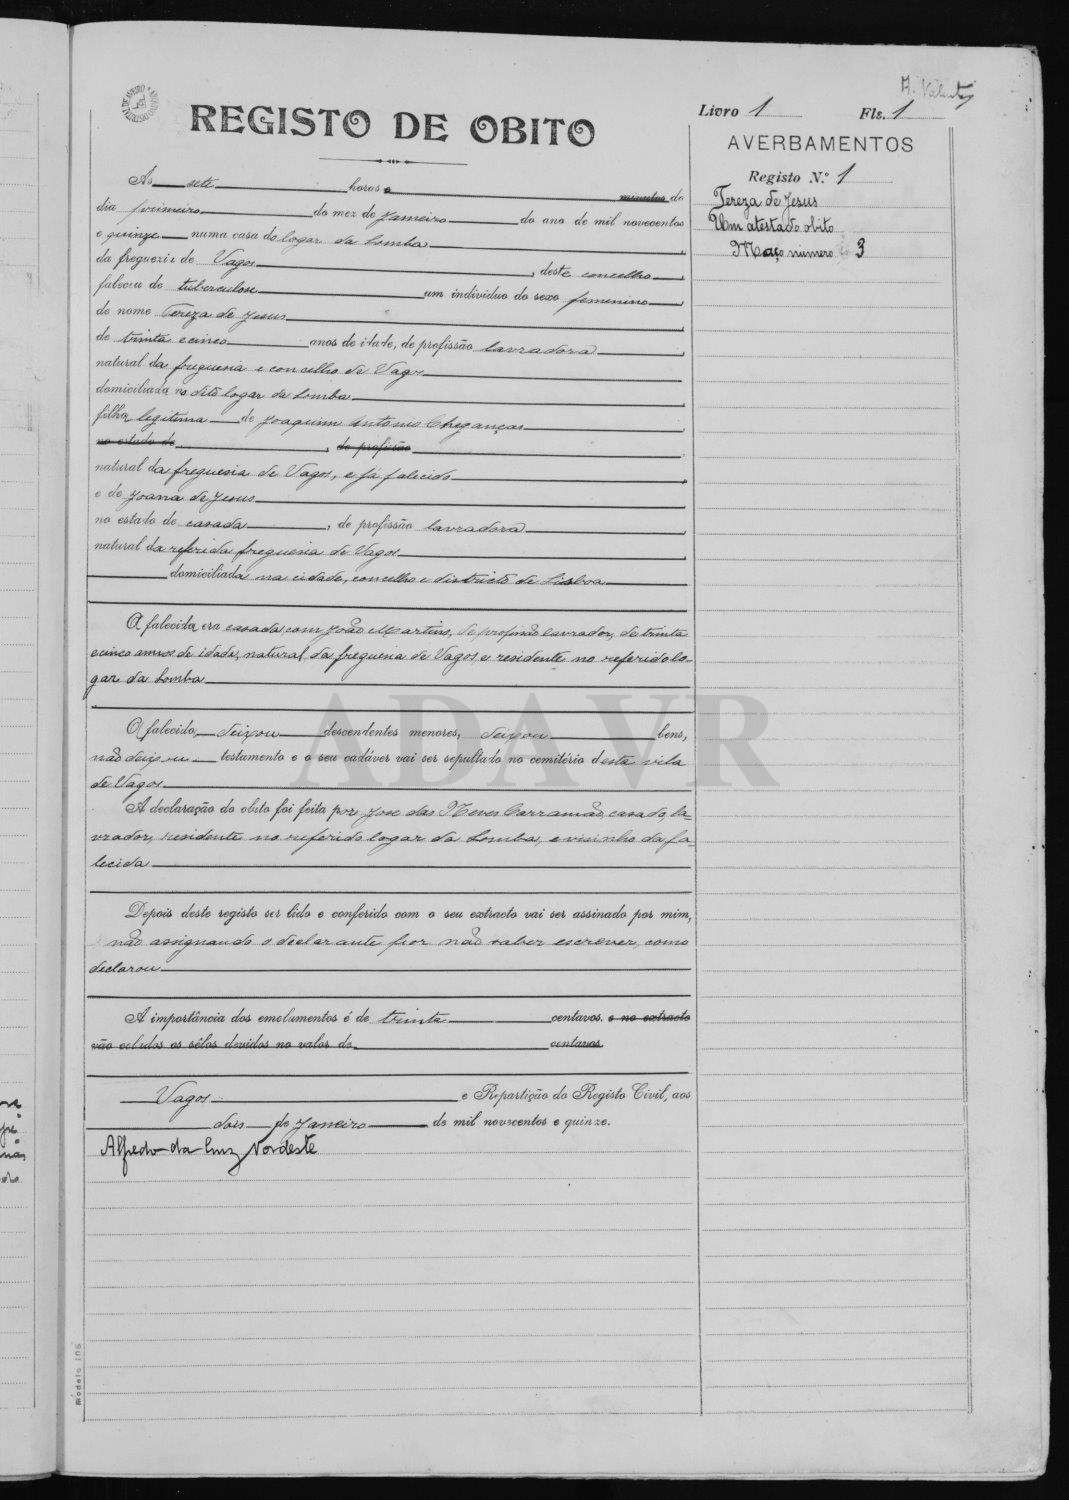 A. Valente
Livro 1 Fls. 1
REGISTO DE OBITO
AVERBAMENTOS
Registo N.º 1
Tereza de Jesus
Um atestado obito
Maço numero 3
As sete horas e minutos do
dia primeiro do mez de Janeiro do ano de mil novecentos
e quinze numa casa do logar da Lomba
da freguezia de Vagos, deste concelho,
faleceu de tuberculose um individuo do sexo femenino,
de nome Tereza de Jesus
de trinta e cinco anos de idade, de profissão lavradora,
natural da freguesia e concelho de Vagos
domiciliada no dito logar da Lomba
filha legitima de Joaquim Antonio Chegançar
no estado de , de profissão
natural da freguesia de Vagos, e já falecido
e de Joana de Jesus
no estado de casada, de profissão lavradora,
natural da referida freguesia de Vagos
domiciliada na cidade, concelho e districto de Lisboa
A falecida era casada com João Martins, de profissão lavrador, de trinta
e cinco annos de idade, natural da freguesia de Vagos e residente no referido lo-
gar da Lomba
O falecido, deixou descendentes menores, deixou bens,
não deixou testamento e o seu cadáver vai ser sepultado no cemitério desta vila
de Vagos
A declaração do obito foi feita por José das Neves Carramão, casado, la-
vrador, residente no referido logar da Lomba, e visinho da fa-
lecida
Depois deste registo ser lido e conferido com o seu extracto vai ser assinado por mim,
não assignando o declarante por não saber escrever, como
declarou
A importância dos emolumentos é de trinta centavos. e no extracto
vão colados os sêlos devidos no valor de centavos.
Vagos e Repartição do Registo Civil, aos
dois de Janeiro de mil novecentos e quinze.
Alfredo da Luz Nordeste
Modelo 106
ADAVR